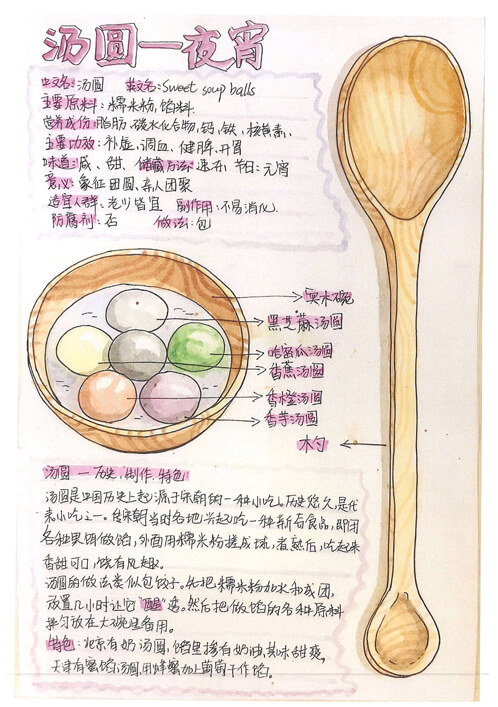 汤圆—夜宵
中文名:汤圆 英文名:Sweet soup balls
主要原料:糯米粉,馅料
营养成份:脂肪、碳水化合物、钙、铁、核黄素、
主要功效:补虚、调血、健脾、开胃
味道:咸、甜、储藏方法:速冻、节日:元宵
意义:象征团圆、亲人团聚
适宜人群:老少皆宜 副作用:不易消化.
防腐剂:否 做法:包
实木碗
黑芝麻汤圆
哈密瓜汤圆
香蕉汤圆
香橙汤圆
香芋汤圆
木勺
汤圆—历史,制作,特色
汤圆是中国历史上起源于宋朝的一种小吃。历史悠久,是代
表小吃之一。宋朝当时各地兴起吃一种新奇食品,即用
各种果饵做馅,外面用糯米粉搓成球,煮熟后,吃起来
香甜可口,饶有风趣.
汤圆的做法类似包饺子。先把糯米粉加水和成团,
放置几小时让它"醒"透。然后把做馅的各种原料
拌匀放在大碗里备用。
特色:北京有奶汤圆,馅里掺有奶油,其味甜爽。
天津有蜜馅汤圆,用蜂蜜加上葡萄干作馅。